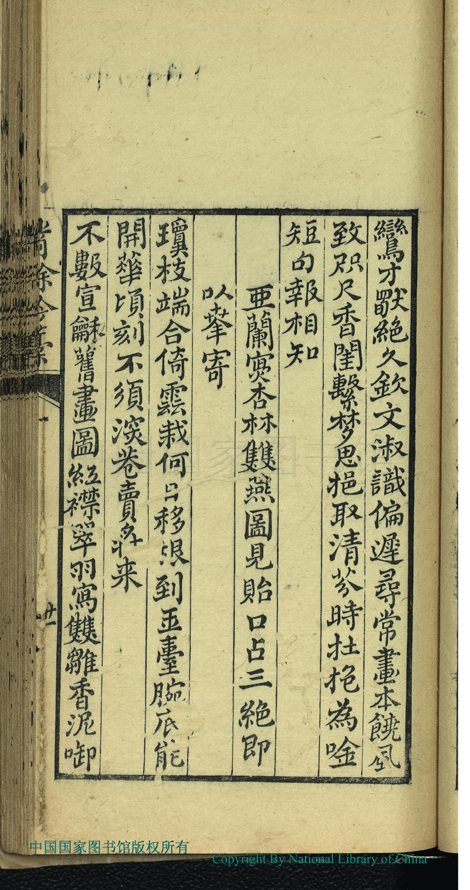 鸞才獻絶久欽文淑識偏遲尋常畫本饒風
致咫尺香閨繫梦思挹取清芬時在抱為唫
短句報相知
亜蘭賓杏林雙燕圖見貽口占三絶即
以奉寄
瓊枝端合倚雲栽何移根到玉臺腕底能
開華頃刻不須深巷賣将来
不數宣龢舊畫圖紅襟翠羽寫雙雛香泥啣
清餘吟藁
廿
中国国家图书馆版权所有
Copyright By National Library of China